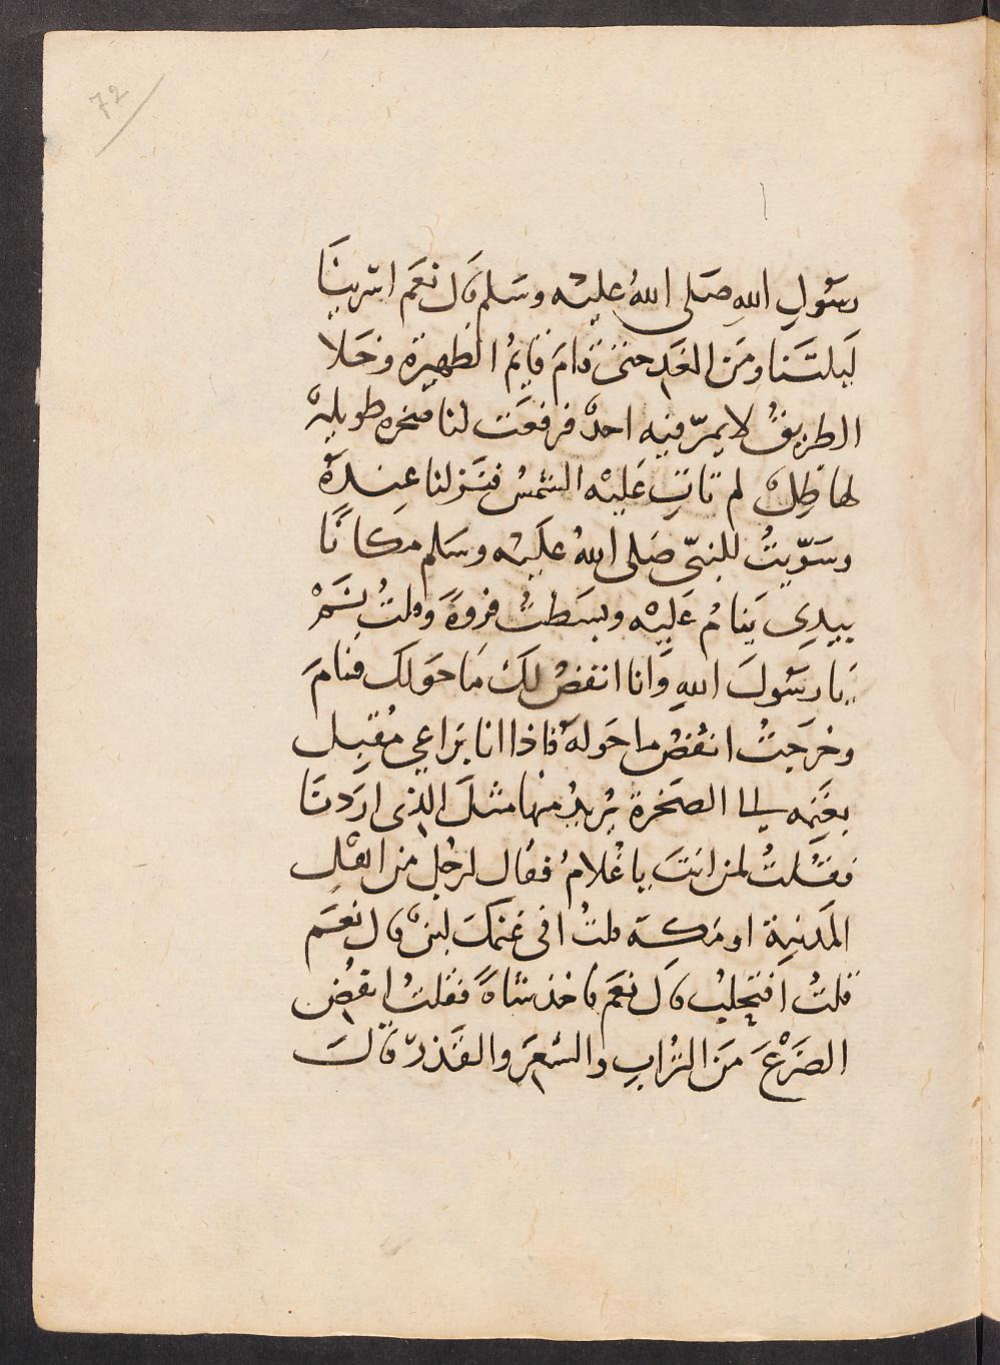 72
رسَولِ اللهِ صَلى اللهُ عليْه وسَلم قَال نعَم اسْرينَا
لَيلتَنا ومَن الغَدِ حتىَ قامَ قايمُ الظهيرة وخَلا
الطريقُ لا يمرّ فيه احدٌ فرفعَت لنا صخره طويلةْ
لها ظِلٌ لم تَاتِ عَليْه الشمْسُ فنَزلنا عِندهُ
وسَوّيتُ للنبىّ صَلى اللهُ عَليْه وسَلم مكانًا
بيدِي يَنامُ عَليْه وبسَطتُ فروةً وقلتُ نَمْ
يَا رسَولَ اللهِ وَانا انفضُ لكَ مَا حَولك فنامَ
وخرَجتُ انفُضُ ما حَولهُ فاذا انا برَاعي مُقبِل
بغنَمِه الى الصَخرةِ يُريدُ منها مثلَ الذِى ارَدنَا
فقُلتُ لمن انتَ يا غُلامُ فقال لرجُلٍ من اهلِ
المَدنية او مَكة قلتُ افى غنمكَ لبنٌ قال نعَم
قلتُ افتحلبُ قال نعَم فاخذ شاةً فقلتُ انفُضِ
الضَرْعَ مَن التُرابِ والشعَرِ والقَذرّ قَالَ